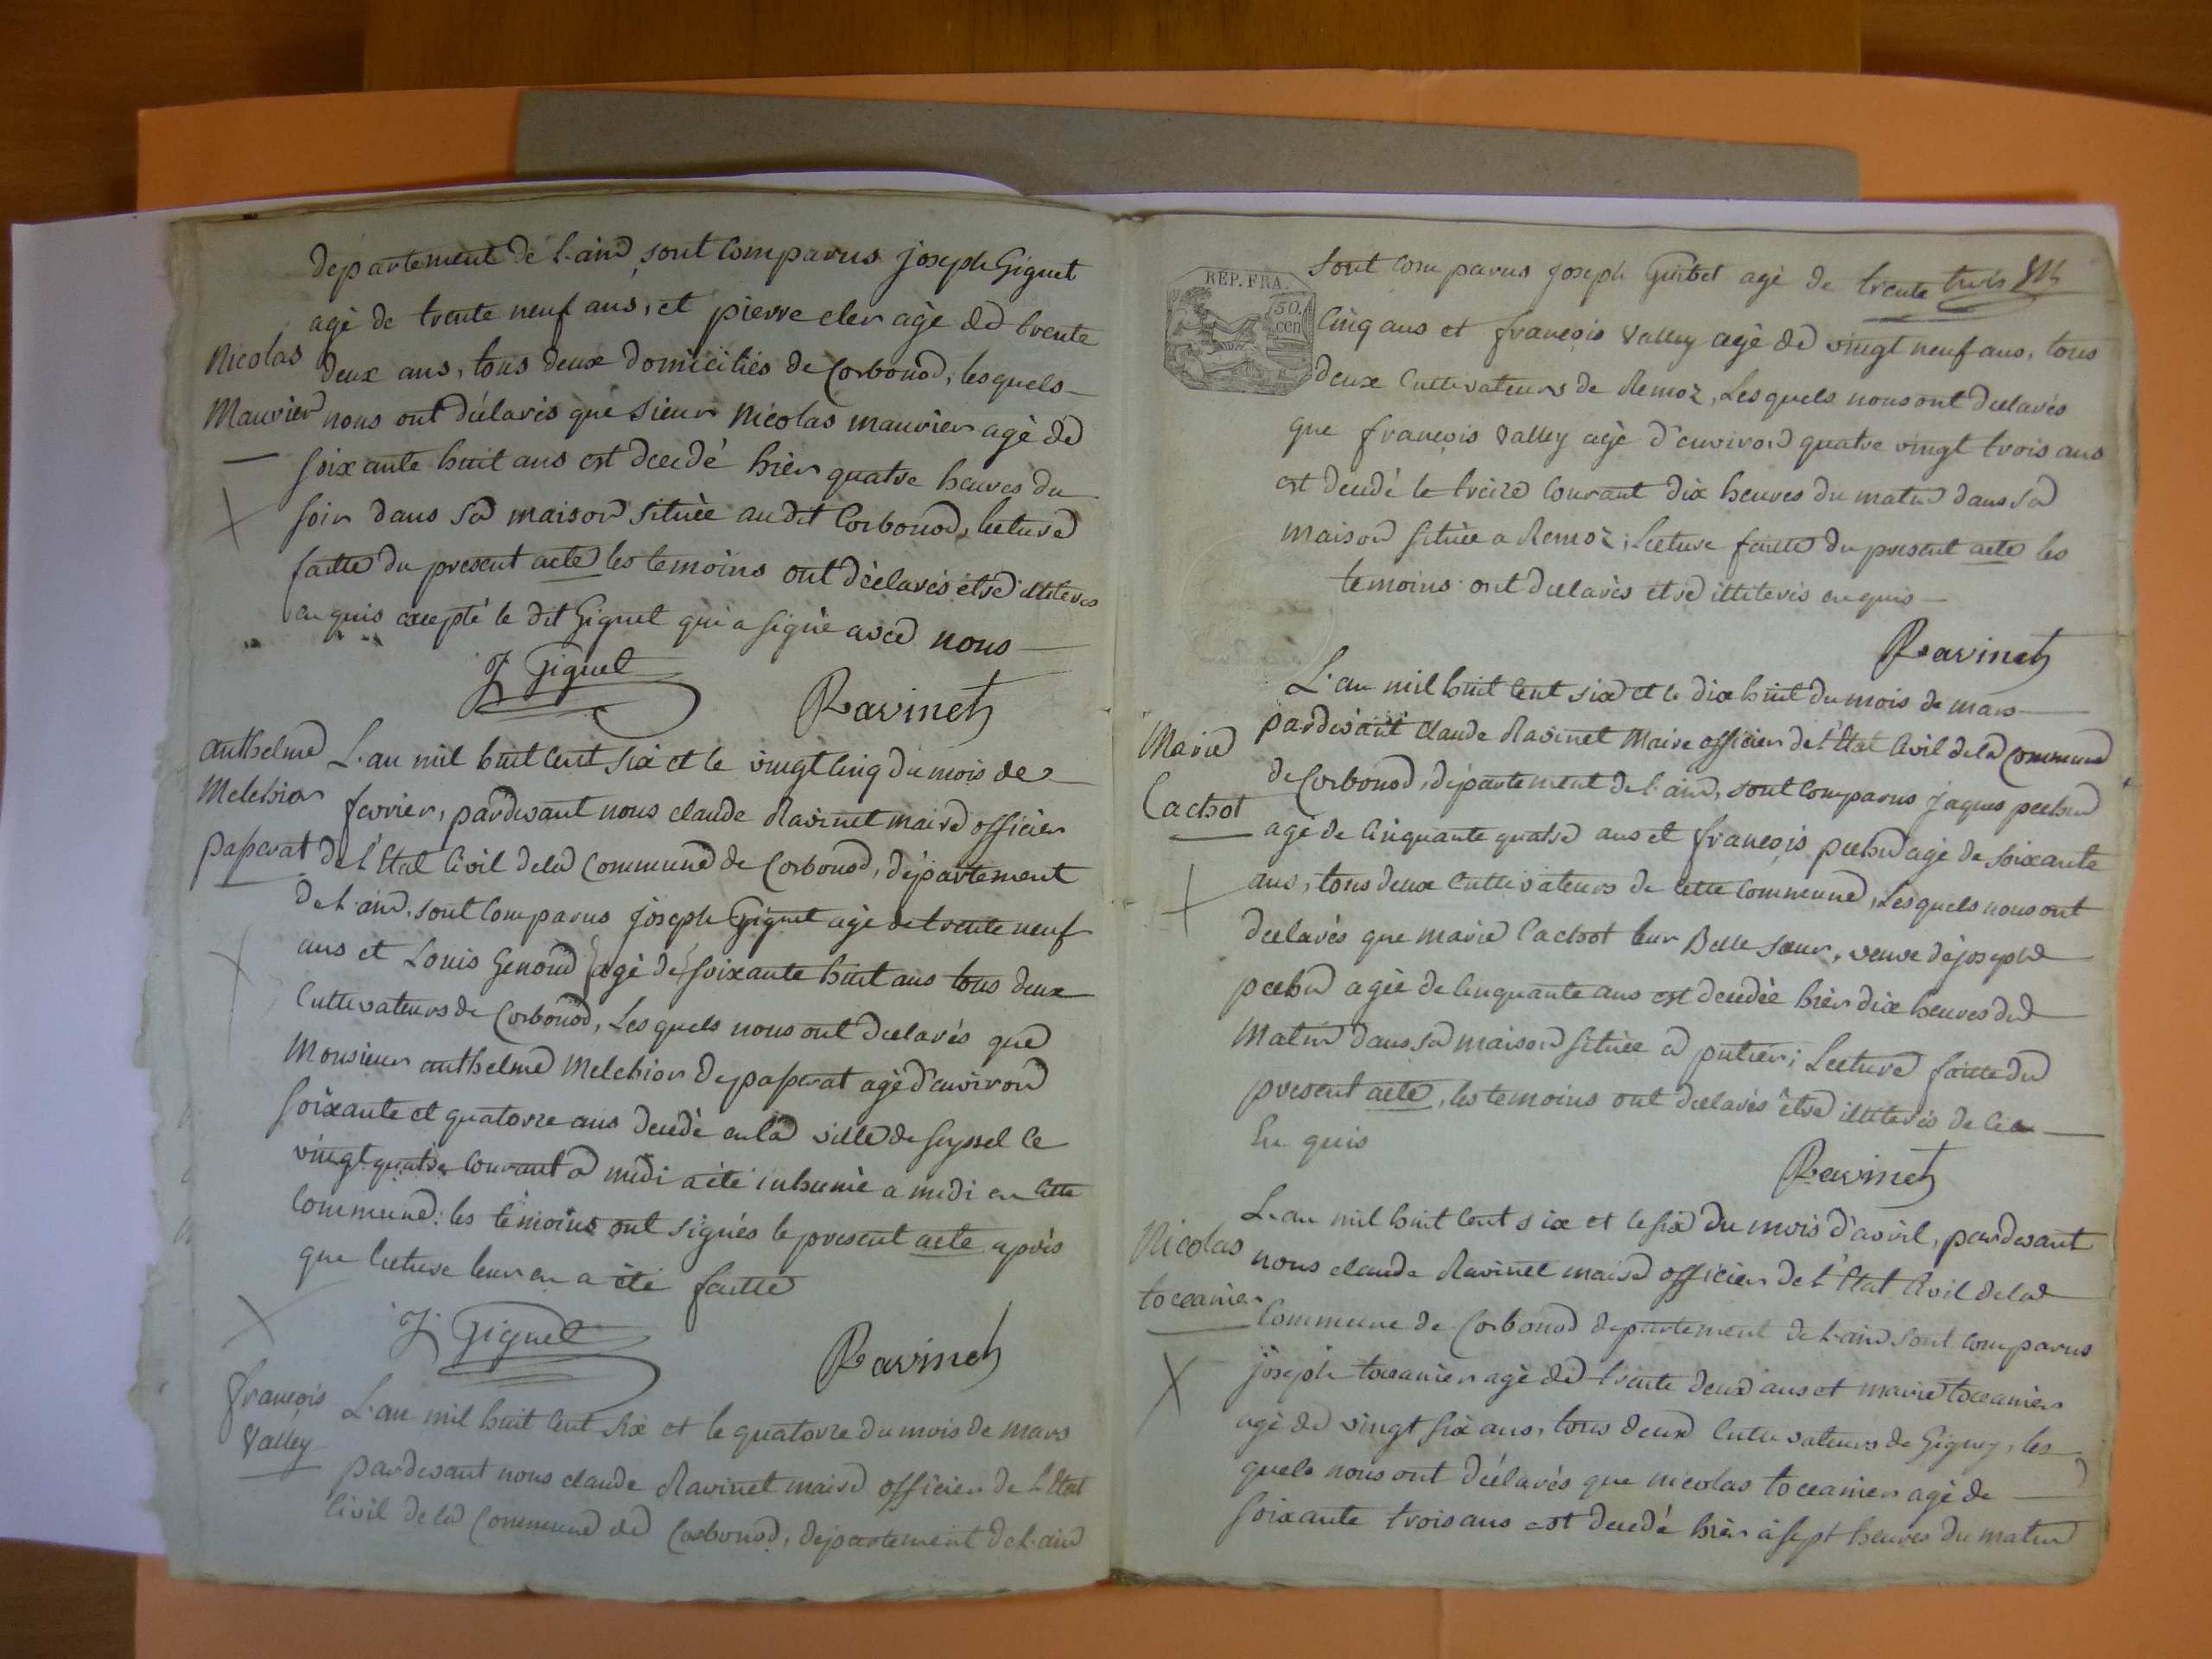 departement de l'ain, sont comparus joseph Giguet
agè de trente neuf ans, et pierre cler agè de trente
Nicolas deux ans, tous deux domiciliés de Corbonod, lesquels
Mauvier nous ont déclarés que sieur Nicolas mauvier agè de
soixante huit ans est decedé hier quatre heures du
soir dans sa maison situèe au dit Corbonod, lecture
faitte du present acte les temoins ont déclarés être illiterés
enquis excepté le dit Giguet qui a signè avec nous
J Giguet
Ravinet
anthelme L'an mil huit cent six et le vingt cinq du mois de
Melchior fevrier, pardevant nous claude Ravinet maire officier
paperat de l'Etat Civil de la Commune de Corbonod, département
de l'ain, sont comparus joseph Giguet agè de trente neuf
ans et Louis Genoud agè de soixante huit ans tous deux
Cultivateurs de Corbonod, Les quels nous ont declarés que
Monsieur anthelme Melchior depaperat agè d'environ
soixante et quatorze ans decedè en la ville de seyssel le
vingt quatre courant a midi a eté inhumè a midi en cette
Commune: les témoins ont signés le present acte après
que lecture leur en a été faitte
J Giguet
Ravinet
françois L'an mil huit cent six et le quatorze du mois de mars
Valley pardevant nous claude Ravinet maire officier de l'Etat
Civil de la Commune de Corbonod, departement de l'ain
REP. FRA.
50. cen
sont comparus joseph Guibet agè de trente trois
Cinq ans et françois Valley agè de vingt neuf ans, tous
deux Cultivateurs de Remoz, Les quels nous ont declarés
que françois Valley agè d'environ quatre vingt trois ans
est decedé le treize courant dix heures du matin dans sa
maison situèe a Remoz; Lecture faitte du present acte les
temoins ont declarès etre illiterés enquis
Ravinet
L'an mil huit cent six et le dix huit du mois de mars
Marie pardevant claude Ravinet Maire officier de l'Etat Civil de la Commune
de Corbonod, département de l'ain, sont comparus jaques pechu
Cachot agè de Cinquante quatre ans et françois pechu agè de soixante
ans, tous deux Cultivateurs de cette Commune, Lesquels nous ont
declarés que marie Cachot leur Belle sœur, veuve de joseph
pechu agèe de Cinquante ans est decedèe hièr dix heures du
Matin dans sa maison situèe a putier; Lecture faitte du
present acte, les temoins ont declarés être illiterés de ce
En quis
Ravinet
L'an mil huit cent six et le six du mois d'avril, pardevant
Nicolas nous claude Ravinet maire officier de l'Etat Civil de la
tocanier Commune de Corbonod departement de l'ain sont comparus
joseph tocanier agè de trente deux ans et marie tocanier
agè de vingt six ans, tous deux Cultivateurs de Gigney, les
quels nous ont déclarés que nicolas tocanier agè de
soixante trois ans est decedé hièr à sept heures du matin